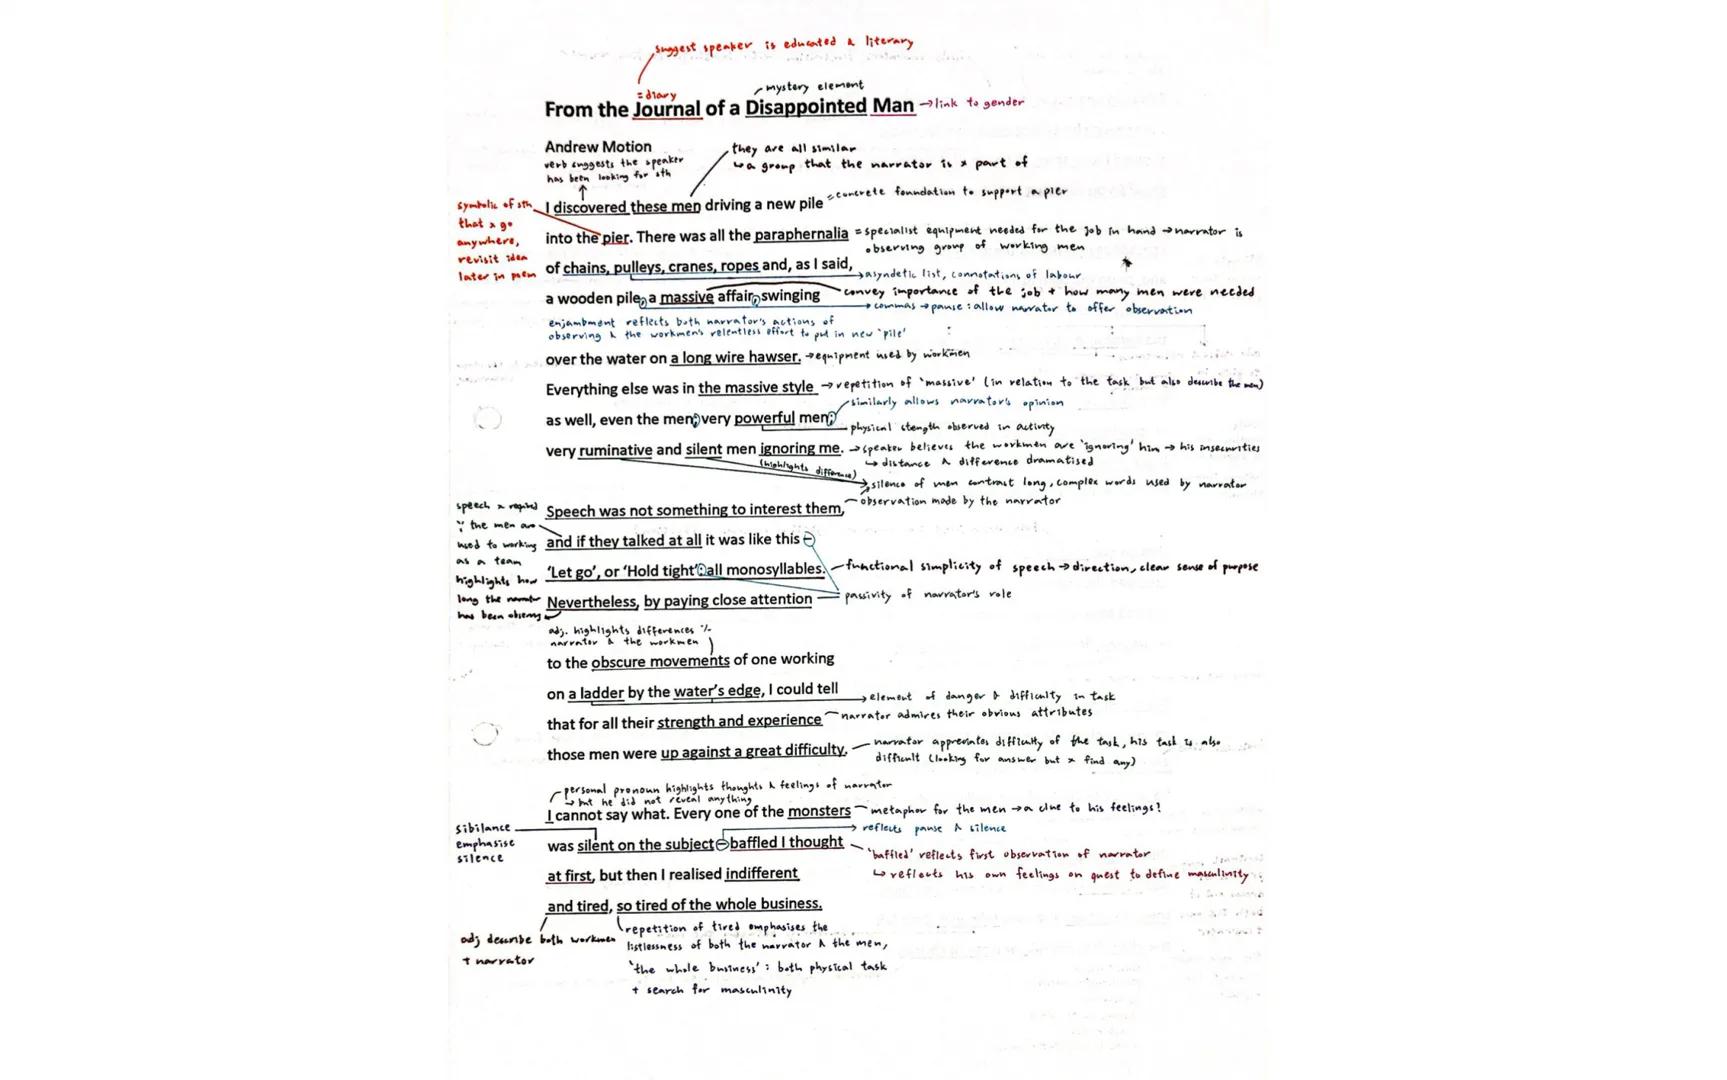 suggest speaker is educated & literary
= diary
mystery element
From the Journal of a Disappointed Man → link to gender
Andrew Motion
verb suggests the speaker
has been looking for sth
they are all similar
↳ a group that the narrator is x part of
I discovered these men driving a new pile = concrete foundation to support a pier
symbolic of sth
that x go
anywhere,
revisit idea
later in poem
into the pier. There was all the paraphernalia = specialist equipment needed for the job in hand → narrator is
observing group of working men
of chains, pulleys, cranes, ropes and, as I said,
→ asyndetic list, connotations of labour
a wooden pile, a massive affair, swinging
convey importance of the job + how many men were needed
→ commas → pause : allow narrator to offer observation
enjambment reflects both narrator's actions of
observing & the workmen's relentless effort to put in new 'pile'
over the water on a long wire hawser. → equipment used by workmen
Everything else was in the massive style → repetition of 'massive' (in relation to the task but also describe the men)
similarly allows narrator's opinion
as well, even the men; very powerful men;
physical stength observed in activity
very ruminative and silent men ignoring me. → speaker believes the workmen are 'ignoring' him → his insecurities
(highlights difference)
↳ distance & difference dramatised
silence of men contract long, complex words used by narrator
observation made by the narrator
Speech was not something to interest them,
speech x required
∵ the men are
used to working
as a team
highlights how
long the narrator
has been observing
and if they talked at all it was like this –
'Let go', or 'Hold tight': all monosyllables. functional simplicity of speech → direction, clear sense of purpose
Nevertheless, by paying close attention
passivity of narrator's role
adj. highlights differences
narrator & the workmen
to the obscure movements of one working
on a ladder by the water's edge, I could tell
→ element of danger & difficulty in task
that for all their strength and experience narrator admires their obvious attributes
those men were up against a great difficulty.
narrator appreciates difficulty of the task, his task is also
difficult (looking for answer but x find any)
personal pronoun highlights thoughts & feelings of narrator
→ but he did not reveal anything
I cannot say what. Every one of the monsters metaphor for the men → a clue to his feelings?
sibilance
emphasise
silence
→ reflects pause & silence
was silent on the subject – baffled I thought
'baffled' reflects first observation of narrator
↳ reflects his own feelings on quest to define masculinity
at first, but then I realised indifferent
and tired, so tired of the whole business.
adj describe both workmen
+ narrator
repetition of tired emphasises the
listlessness of both the narrator & the men,
'the whole business' : both physical task
+ search for masculinity